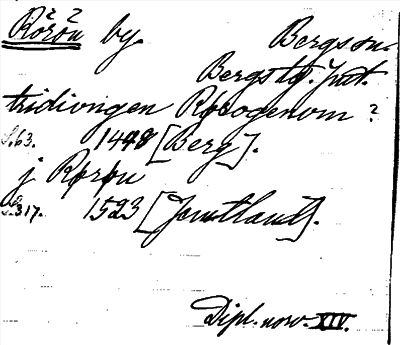 Rörön by Bergs sn.
Bergs tg. Jmt.
tridiongen Røsogenom?
S.63. 1448 [Berg].
j Rørøn
S.317. 1523 [Jämtland].
Dipl. norv. XIV.